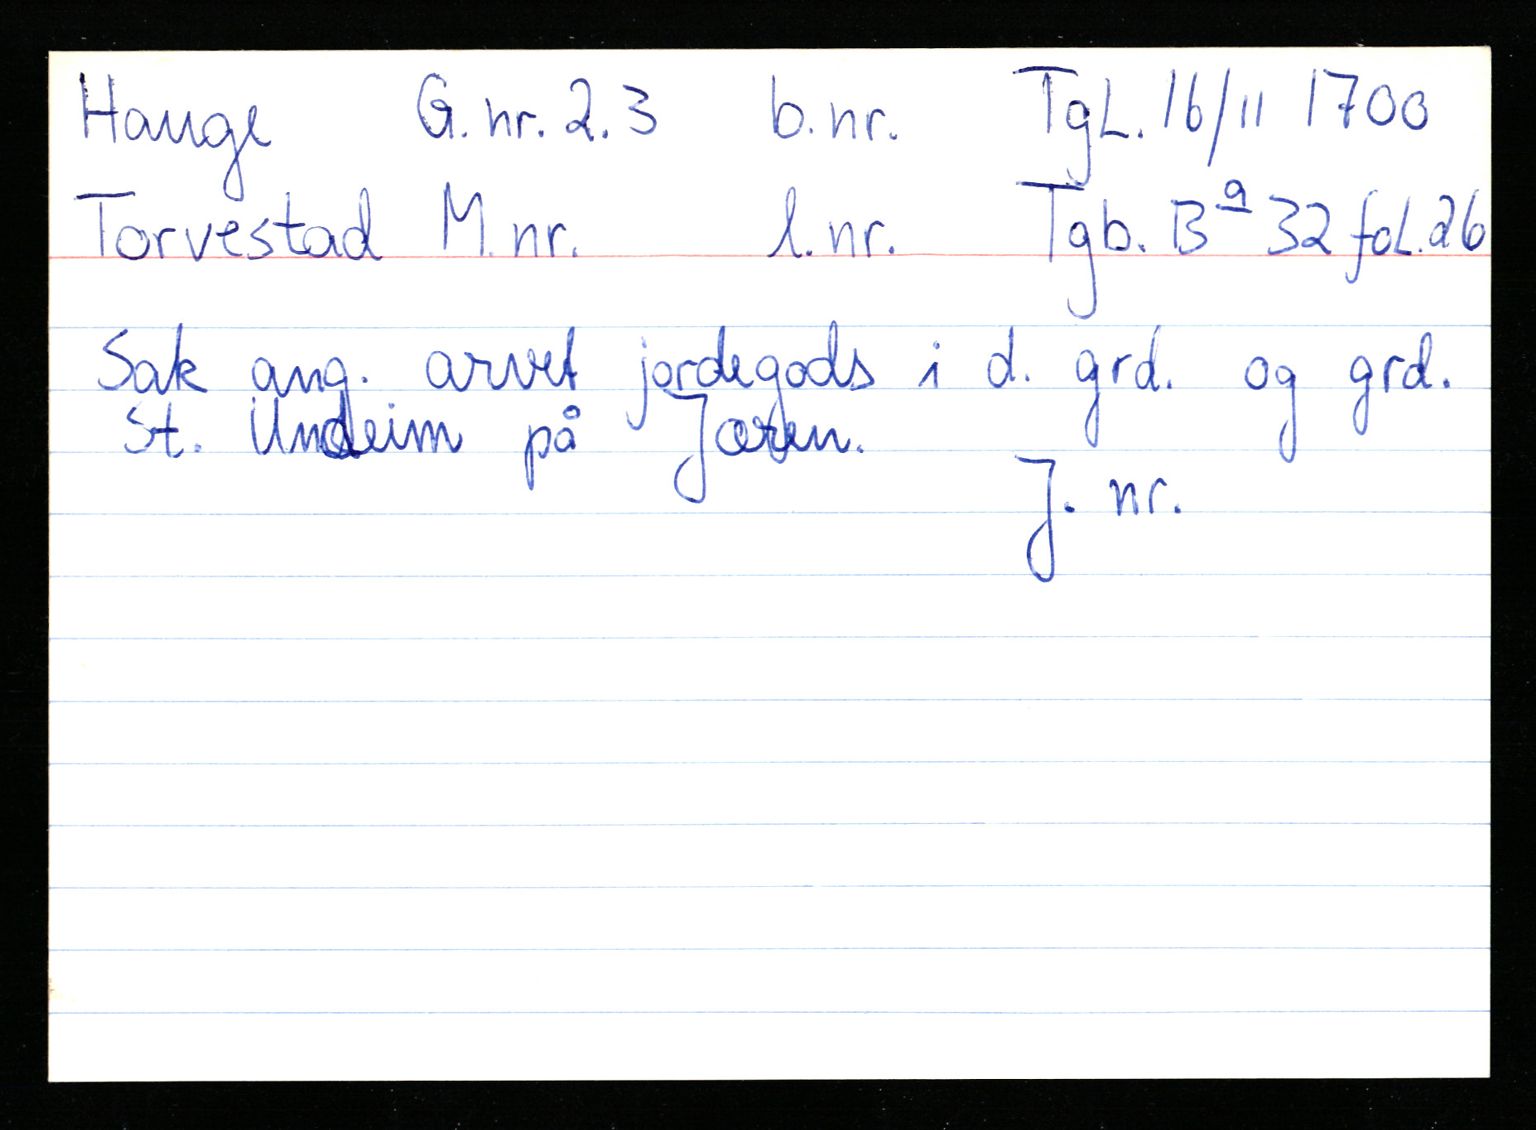 Hauge G.nr. 2.3 b.nr. TgL. 16/11 1700
Torvestad M.nr. l.nr. Tgb. Bª 32 fol. 26
Sak ang. arvet jordegods i d. grd. og grd.
St. Undeim på Jæren.
J. nr.